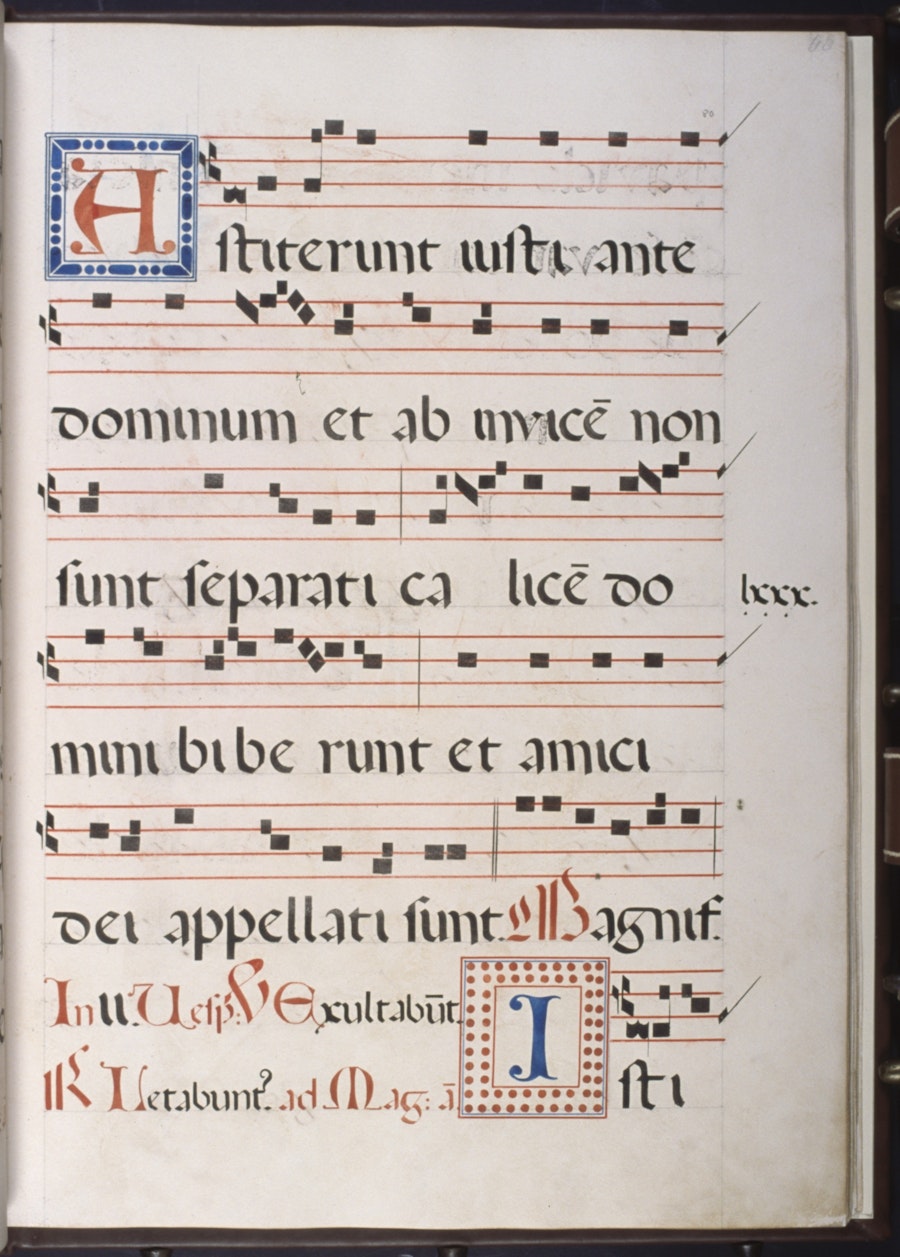 Astiterunt iusti ante
dominum et ab invicē non
sunt separati ca licē do
lxxx.
mini bibe runt et amici
dei appellati sunt. Magnif.
In II. Vesp̄: V Exultabūt
R Letabunt. ad Mag: ā
Isti